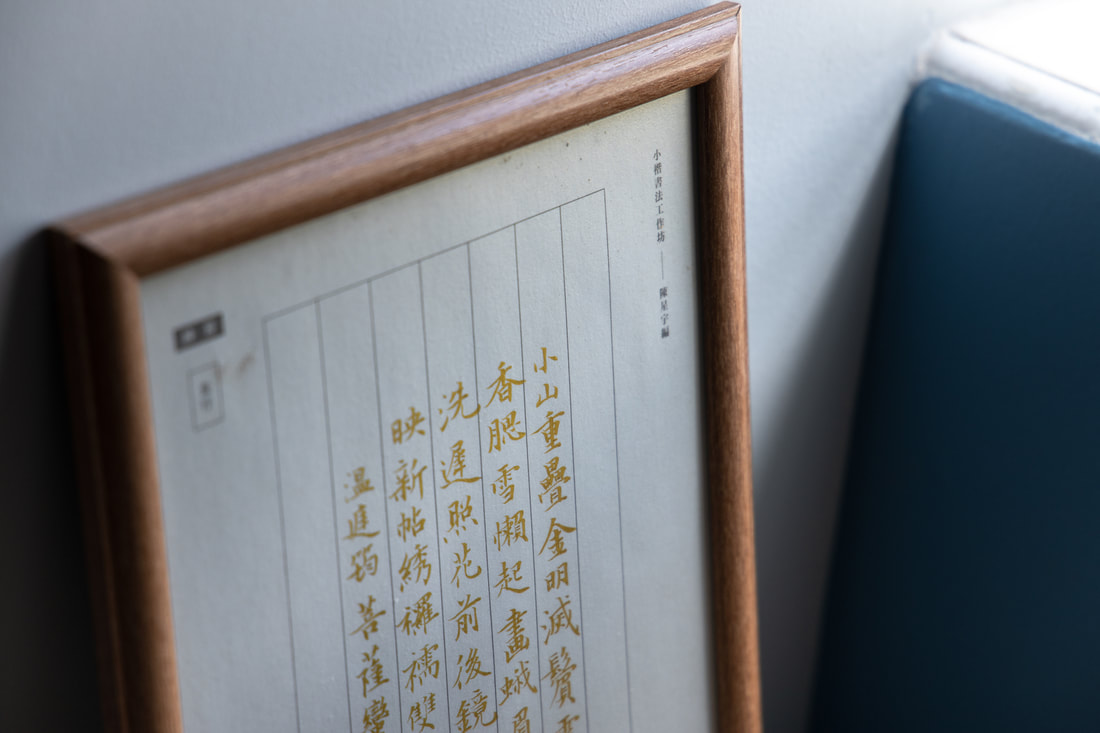 小楷書法工作坊——陳星宇編
小山重疊金明滅鬢雲
香腮雪懶起畫蛾眉
洗遲照花前後鏡
映新帖綉襬襦雙
溫庭筠菩薩蠻